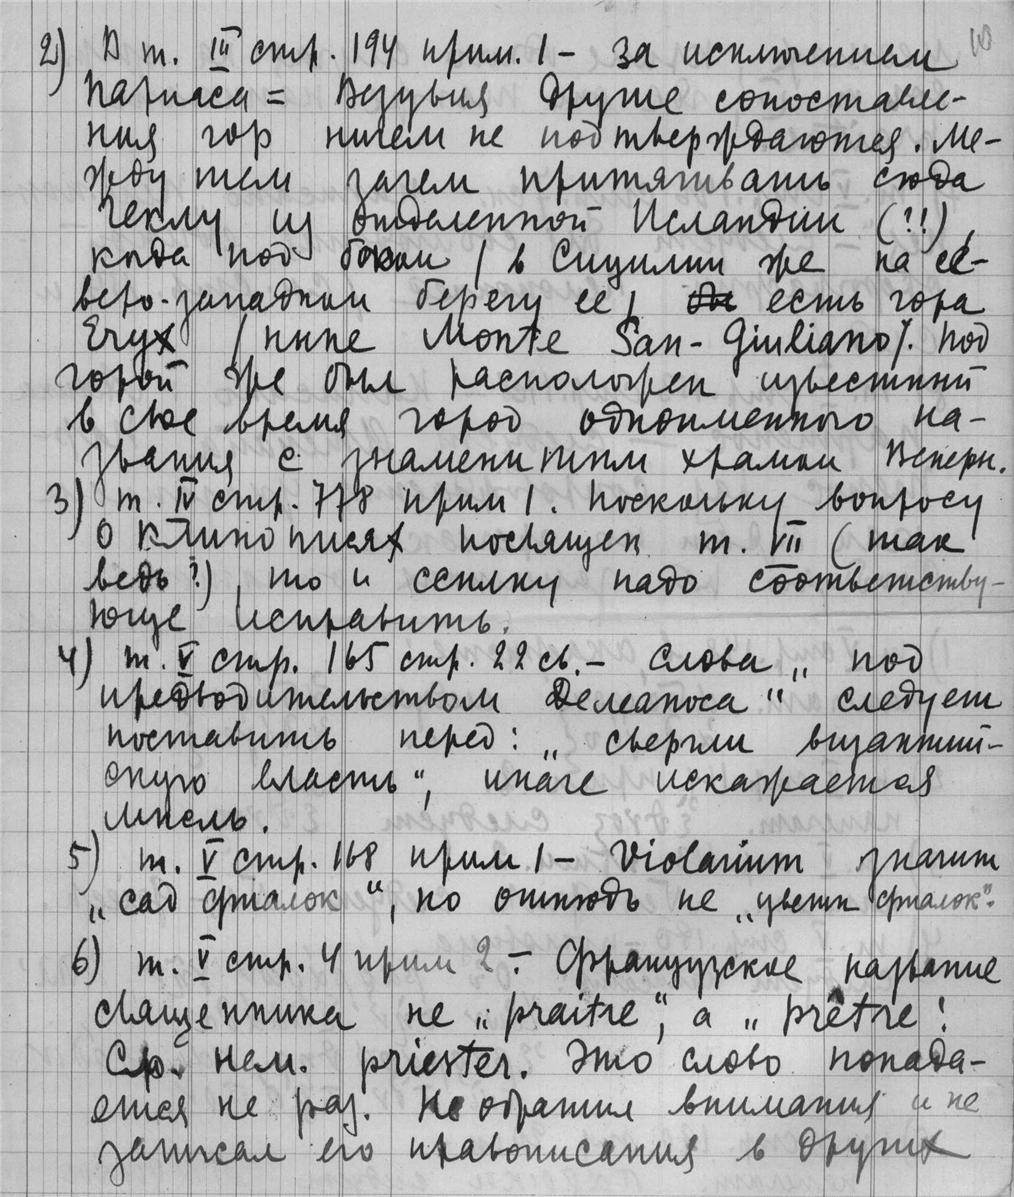 10
2) В т. III стр. 194 прим. 1 – за исключением
Парнаса = Везувия другие сопоставле-
ния гор ничем не подтверждаются. Ме-
жду тем зачем притягивать сюда
Геклу из отдаленной Исландии (!!),
когда под боком / в Сицилии же на се-
веро-западном берегу ее / есть гора
Eryx / ныне Monte San-Giuliano /. Под
горой же был расположен известный
в свое время город одноименного на-
звания с знаменитым храмом Венеры.
3) т. IV стр. 778 прим 1. Поскольку вопросу
о клинописях посвящен т. VII (так
ведь?) то и ссылку надо соответству-
юще исправить.
4) т. V стр. 165 стр. 22 св. – слова „под
предводительством Делеаноса“ следует
поставить перед: „свергли византий-
скую власть“, иначе искажается
мысль.
5) т. V стр. 168 прим 1 – Violarium значит
„сад фиалок“, но отнюдь не „цветы фиалок“.
6) т. V стр. 4 прим 2 – Французское название
священника не „praitre“, а „prêtre!
Ср. нем. priester. Это слово попада-
ется не раз. Не обратил внимания и не
записал его правописания в других